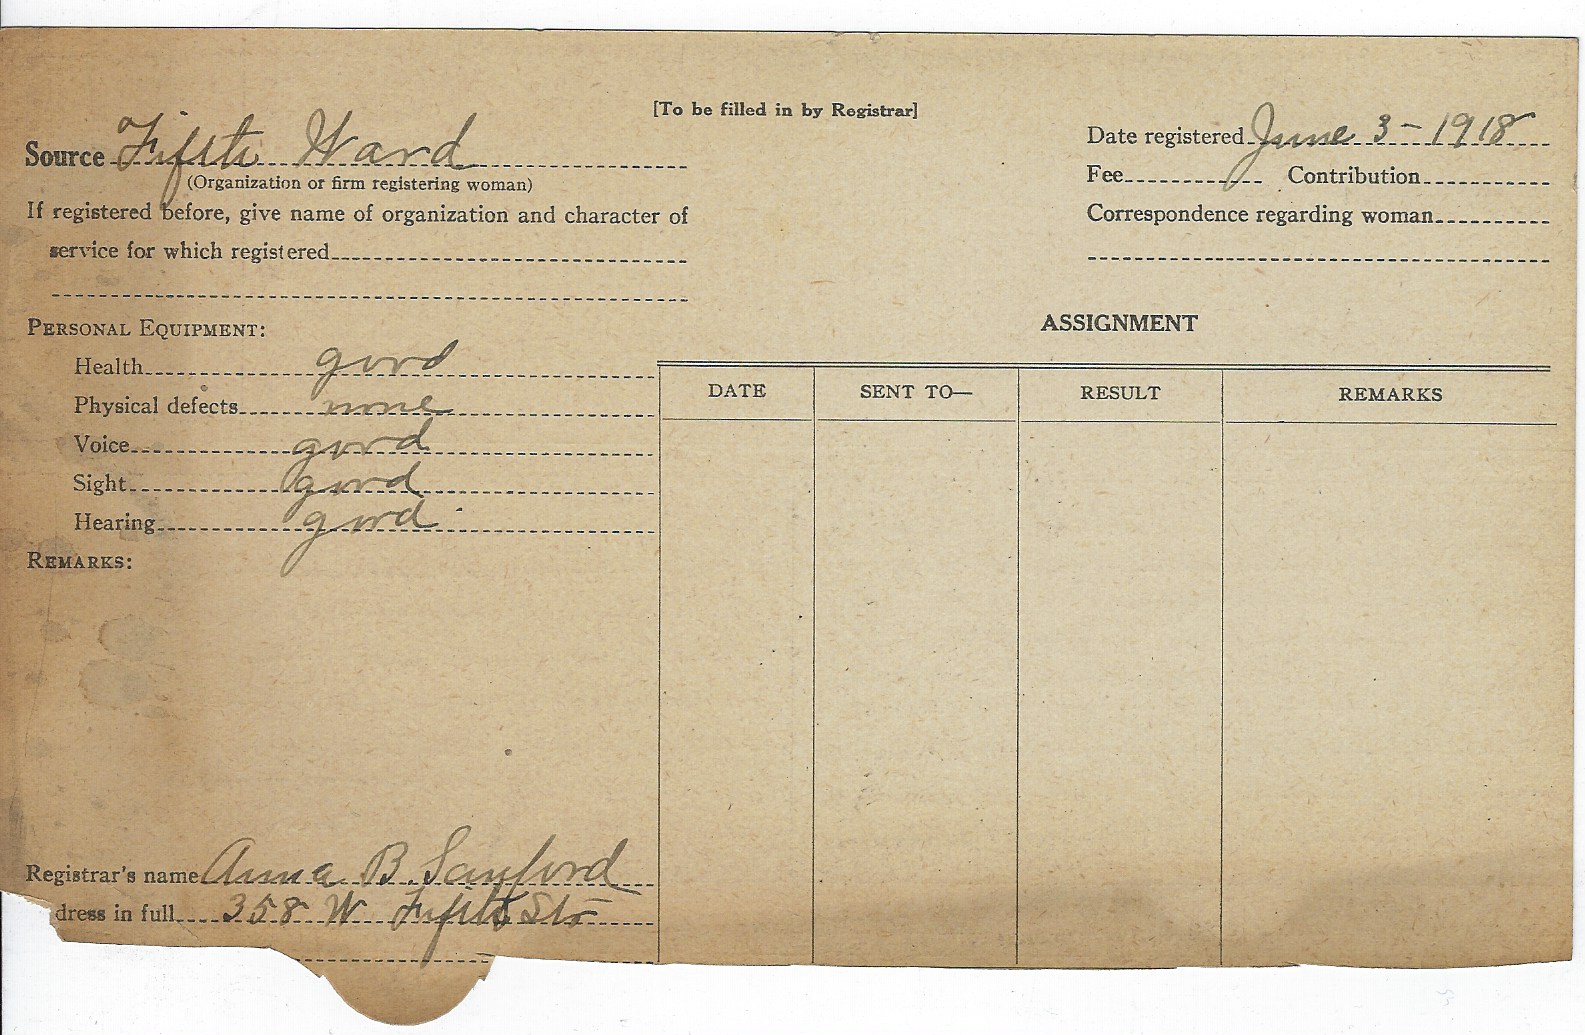 [To be filled in by Registrar]
Source Fifth Ward
(Organization or firm registering woman)
If registered before, give name of organization and character of
service for which registered
Date registered June 3-1918
Fee Contribution
Correspondence regarding woman
PERSONAL EQUIPMENT:
Health good
Physical defects none
Voice good
Sight good
Hearing good
REMARKS:
ASSIGNMENT
DATE SENT TO— RESULT REMARKS
Registrar's name Anna B. Sanford
dress in full 358 W Fifth Str